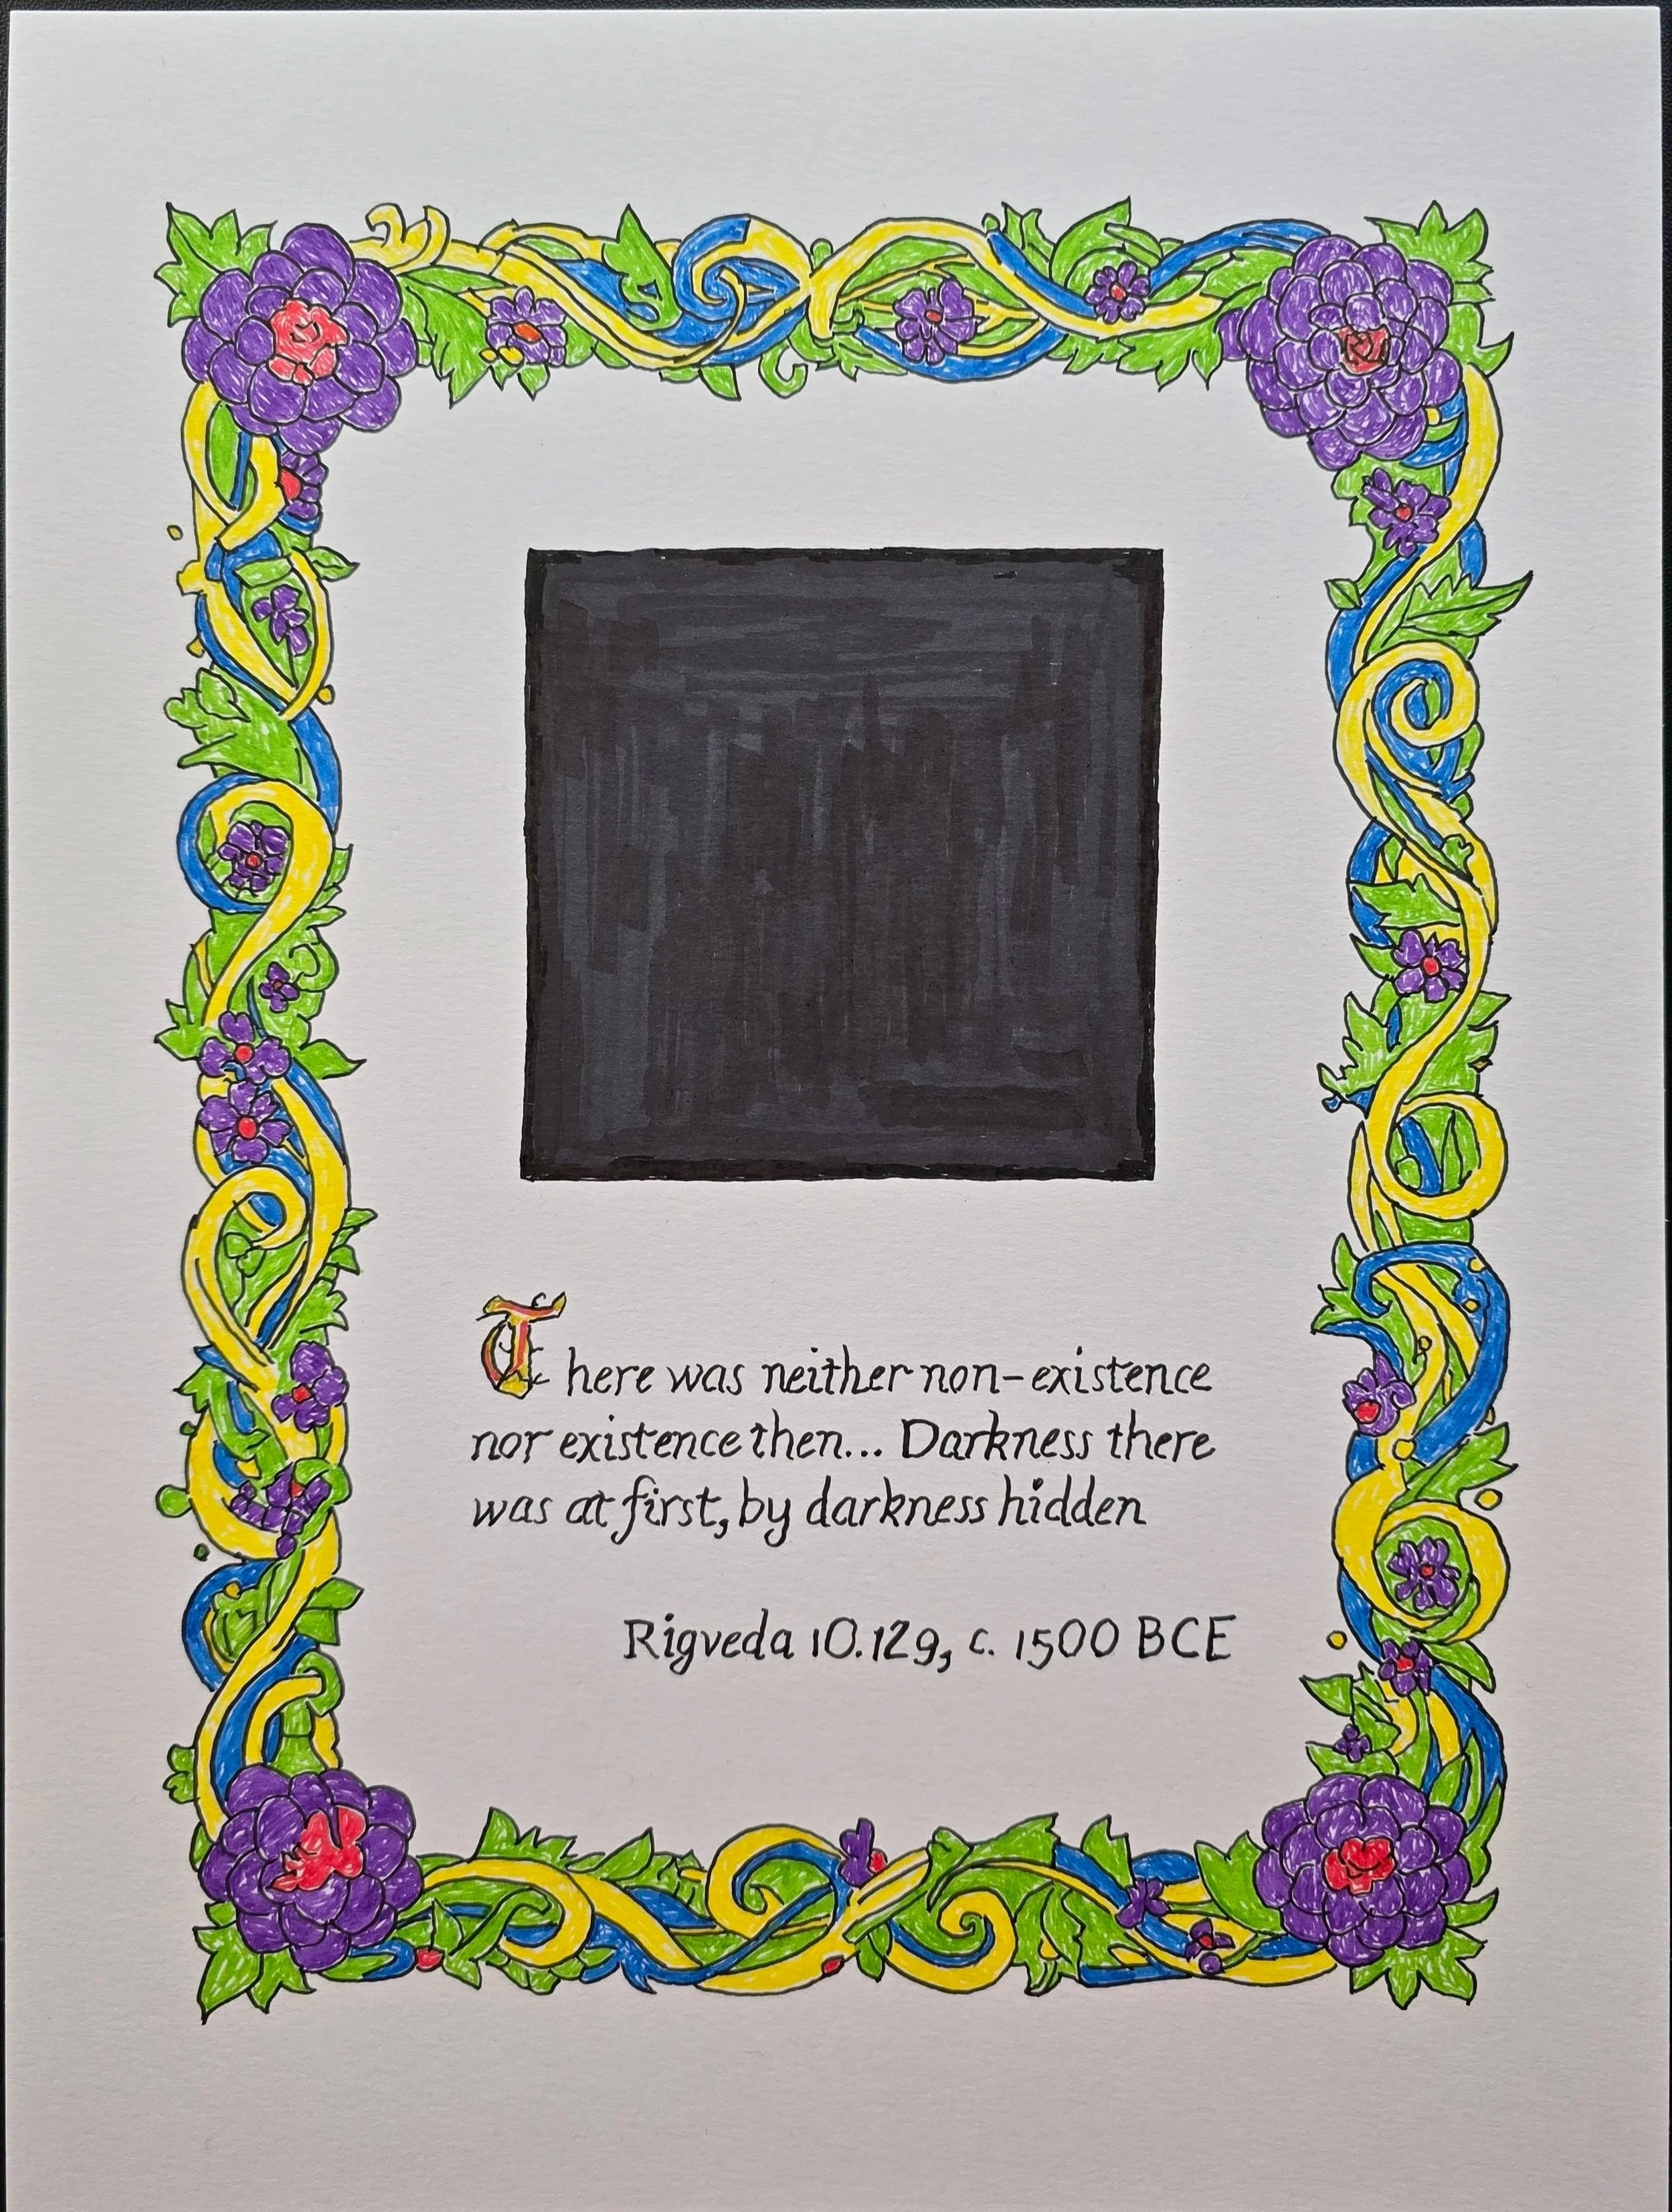 There was neither non-existence
nor existence then... Darkness there
was at first, by darkness hidden
Rigveda 10.129, c. 1500 BCE